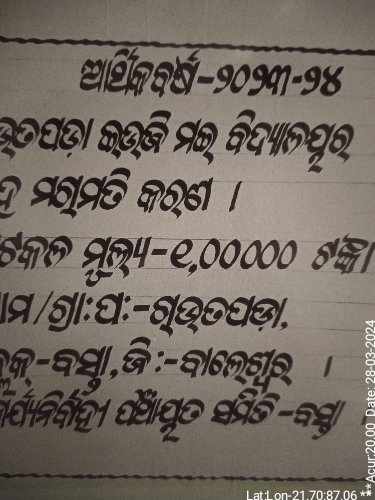 ଆର୍ଥିକବର୍ଷ-୨୦୨୩-୨୪
ମଇ ବିଦ୍ୟାଳୟର
ମରାମତି କରଣ ।
ଟକଳ ମୂଲ୍ୟ-୧,00000 ଟଙ୍କା
/ଗ୍ରା:ପ:-ଗୁଡ଼ତପଡ଼ା,
-ବସ୍ତା,ଜି:-ବାଲେଶ୍ୱର ।
ପଞ୍ଚାୟତ ସମିତି-ବସ୍ତା
Lat:Lon-21.70:87.06 **Acur:20.00 Date: 28-03-2024